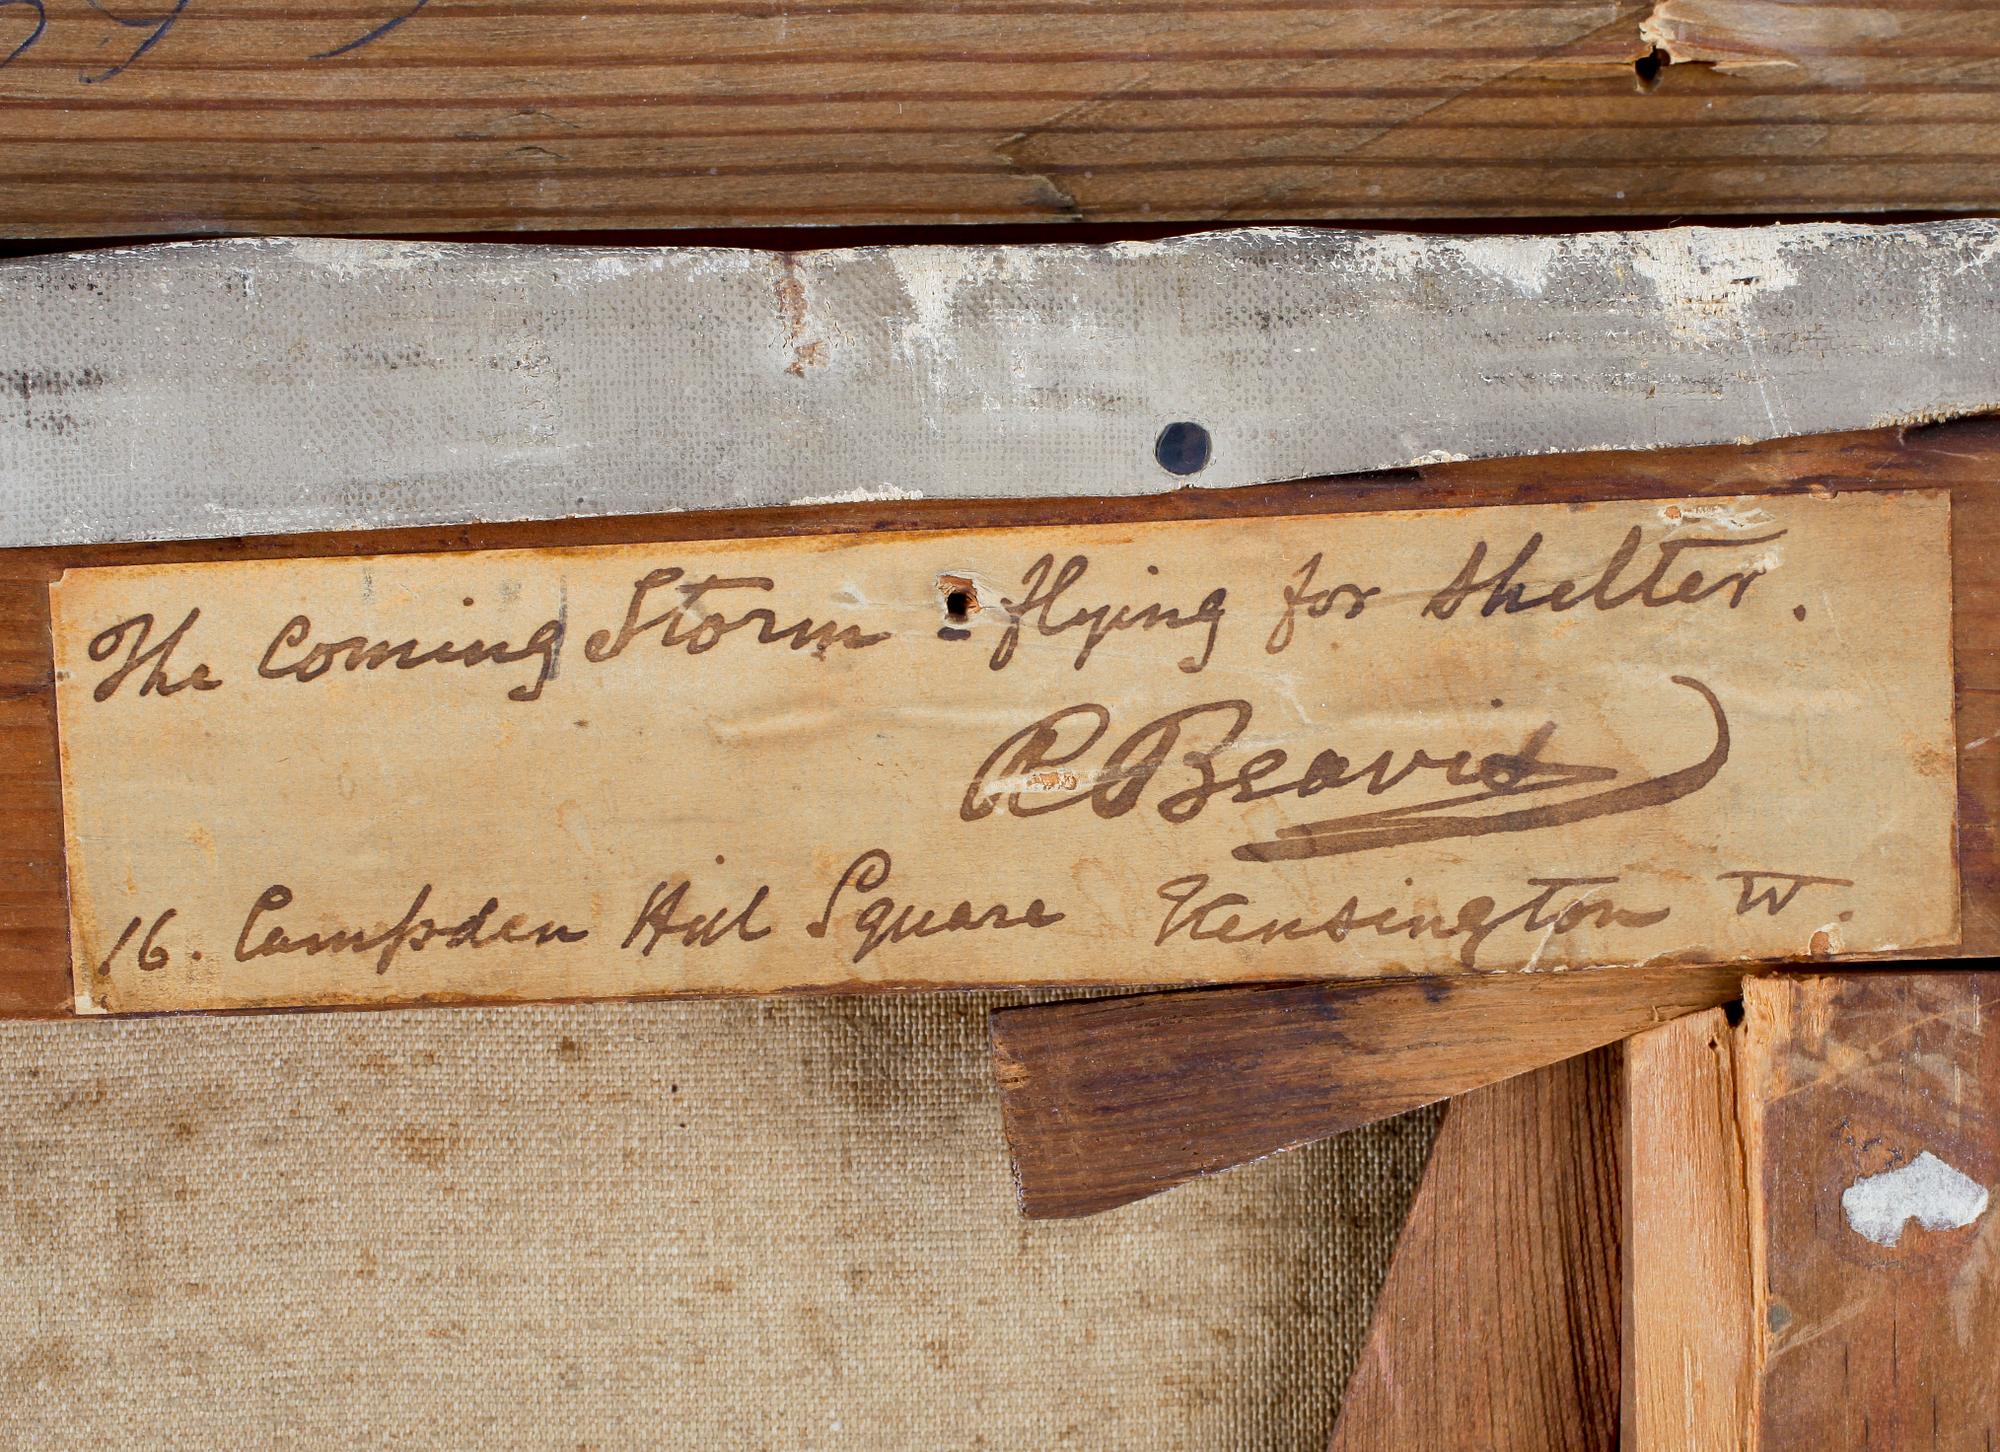 The Coming Storm - flying for shelter.
R Beavis
16. Campden Hill Square Kensington W.